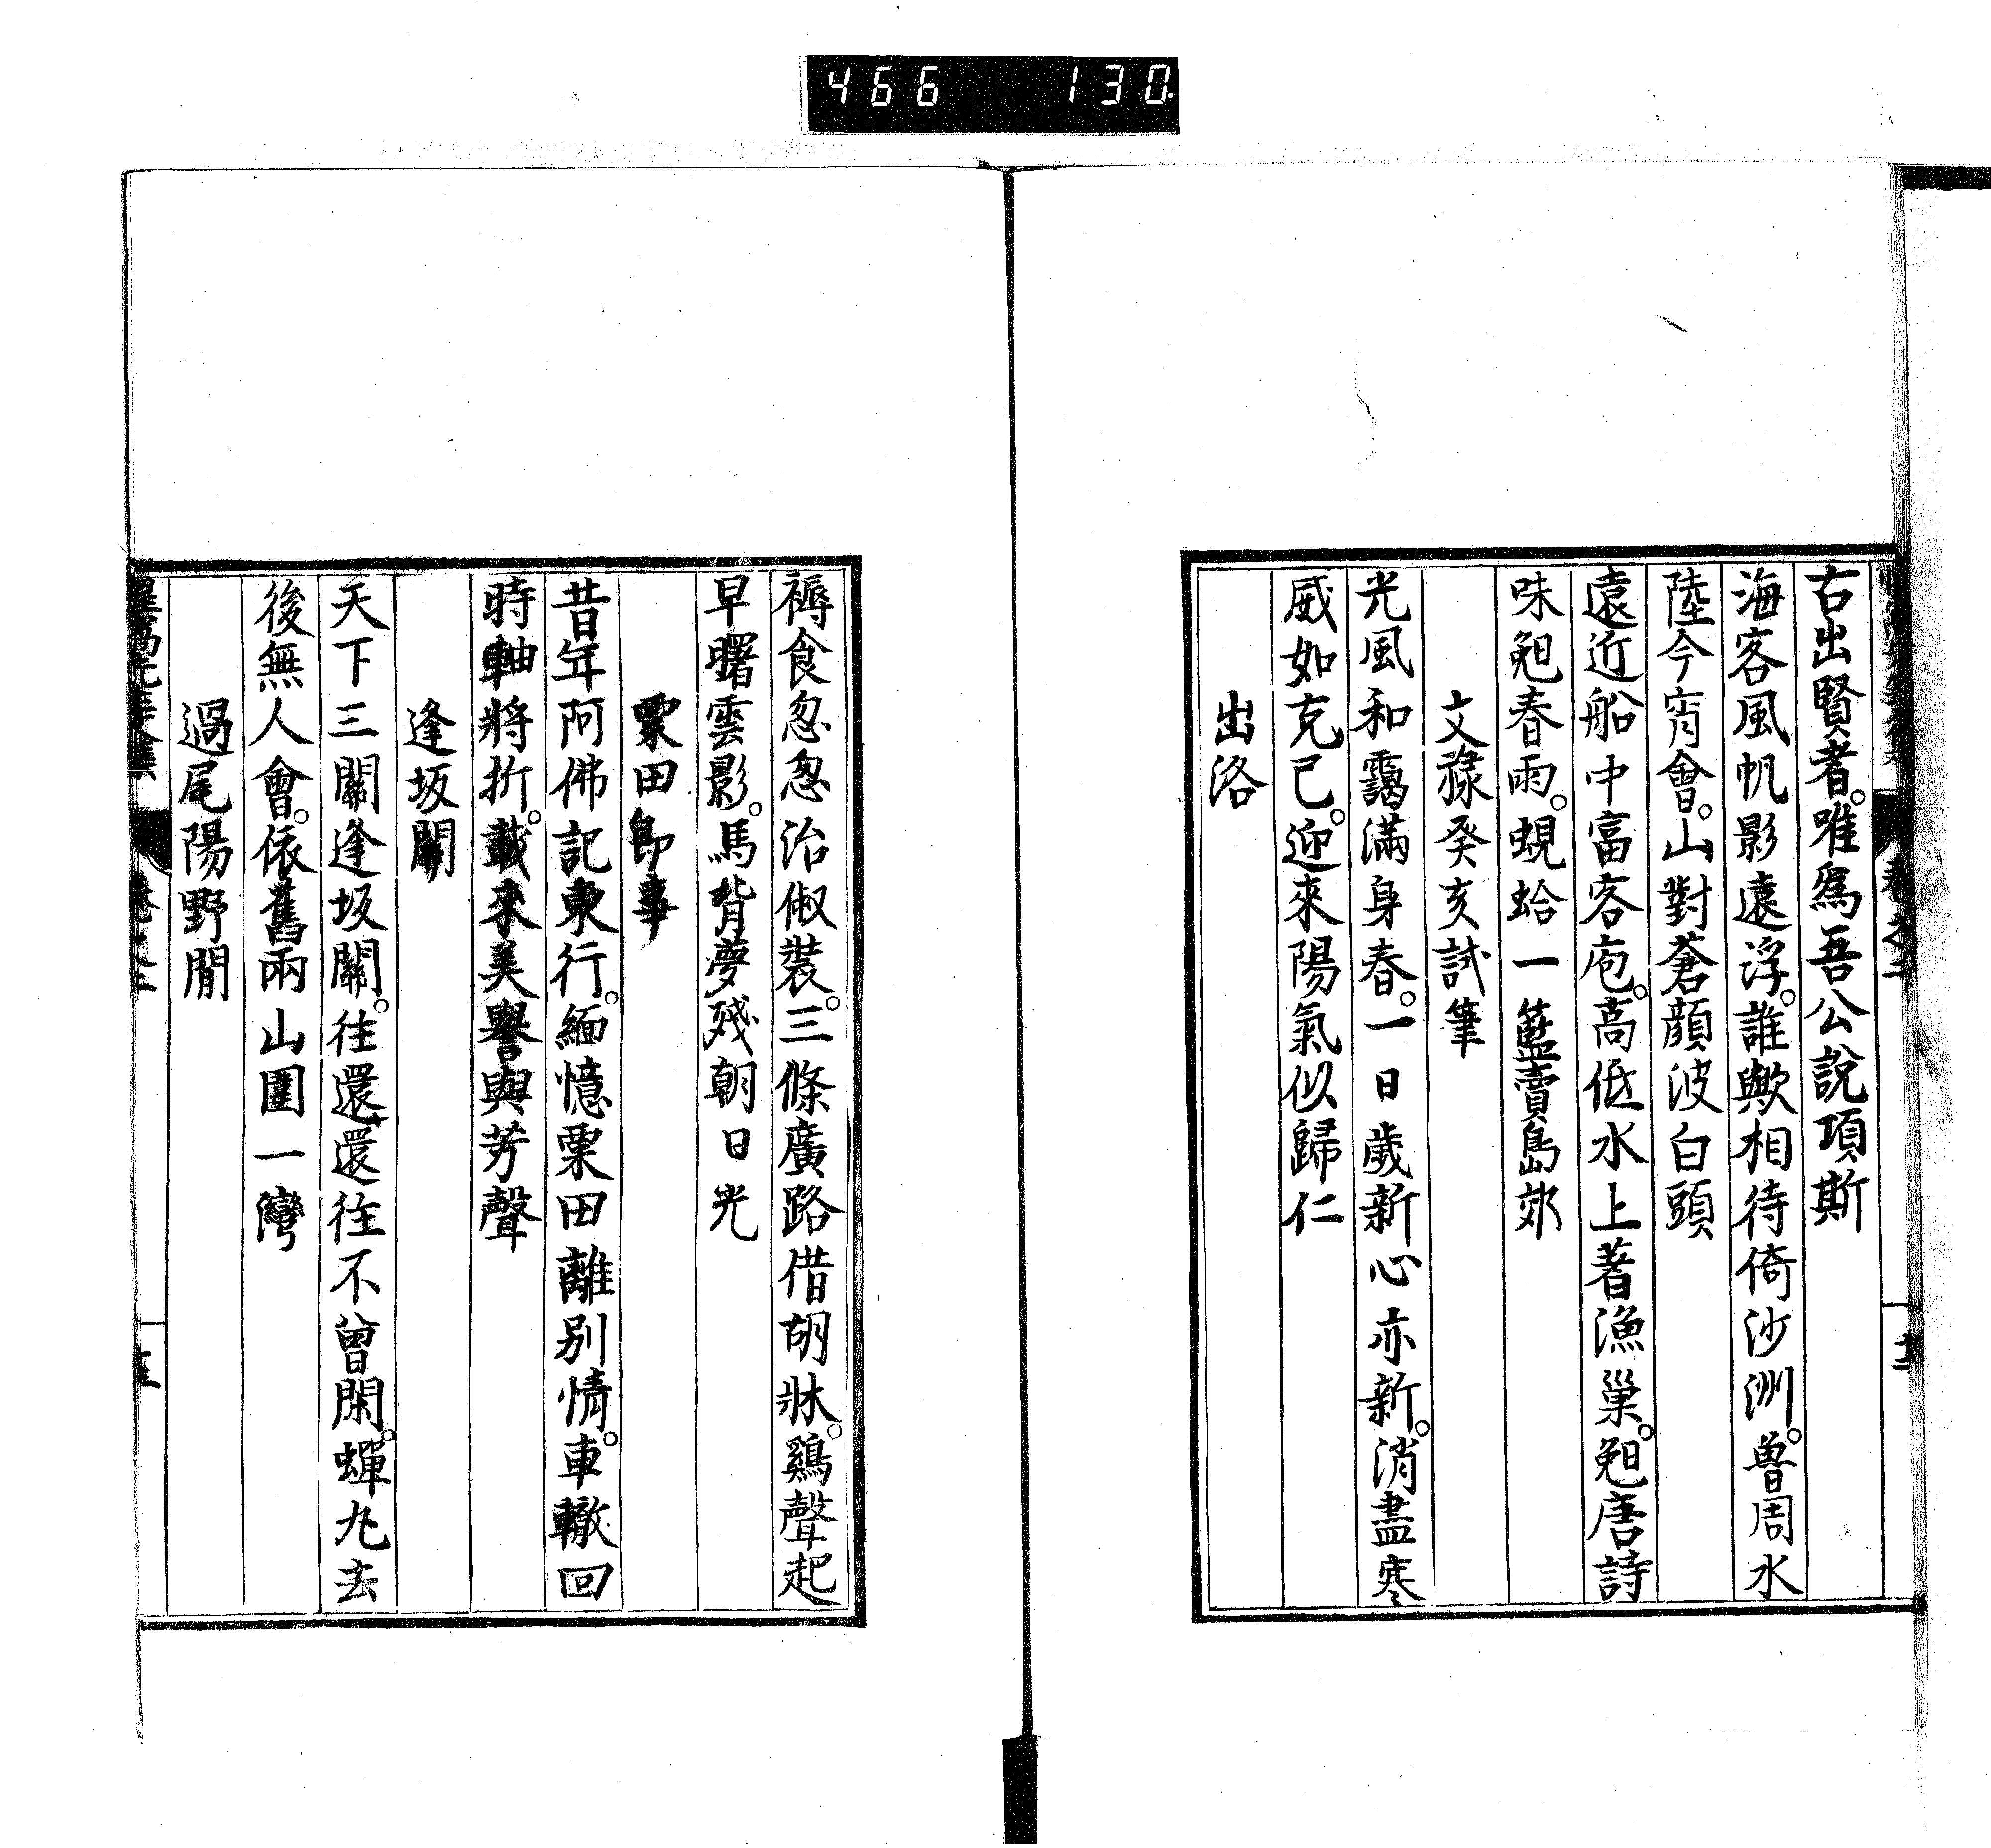 466 130
右出賢者。唯爲吾公說項斯
海客風帆影遠浮。誰歟相待倚沙洲。曾周水
陸今宵會。山對蒼顔波白頭
遠近船中富客庖。高低水上著漁巢。䱉唐詩
味䱉春雨。蜆蛤一籃賣島郊
文祿癸亥試筆
光風和靄滿身春。一日歲新心亦新。消盡寒
威如克己。迎來陽氣似歸仁
出洛
褥食怱怱治俶裝。三條廣路借胡牀。鷄聲起
早曙雲影。馬背夢殘朝日光
粟田卽事
昔年阿佛記東行。緬憶粟田離別情。車轍回
時軸將折。載來美譽與芳聲
逢坂關
天下三關逢坂關。往還還往不曾閑。蟬丸去
後無人會。依舊兩山圍一灣
過尾陽野間